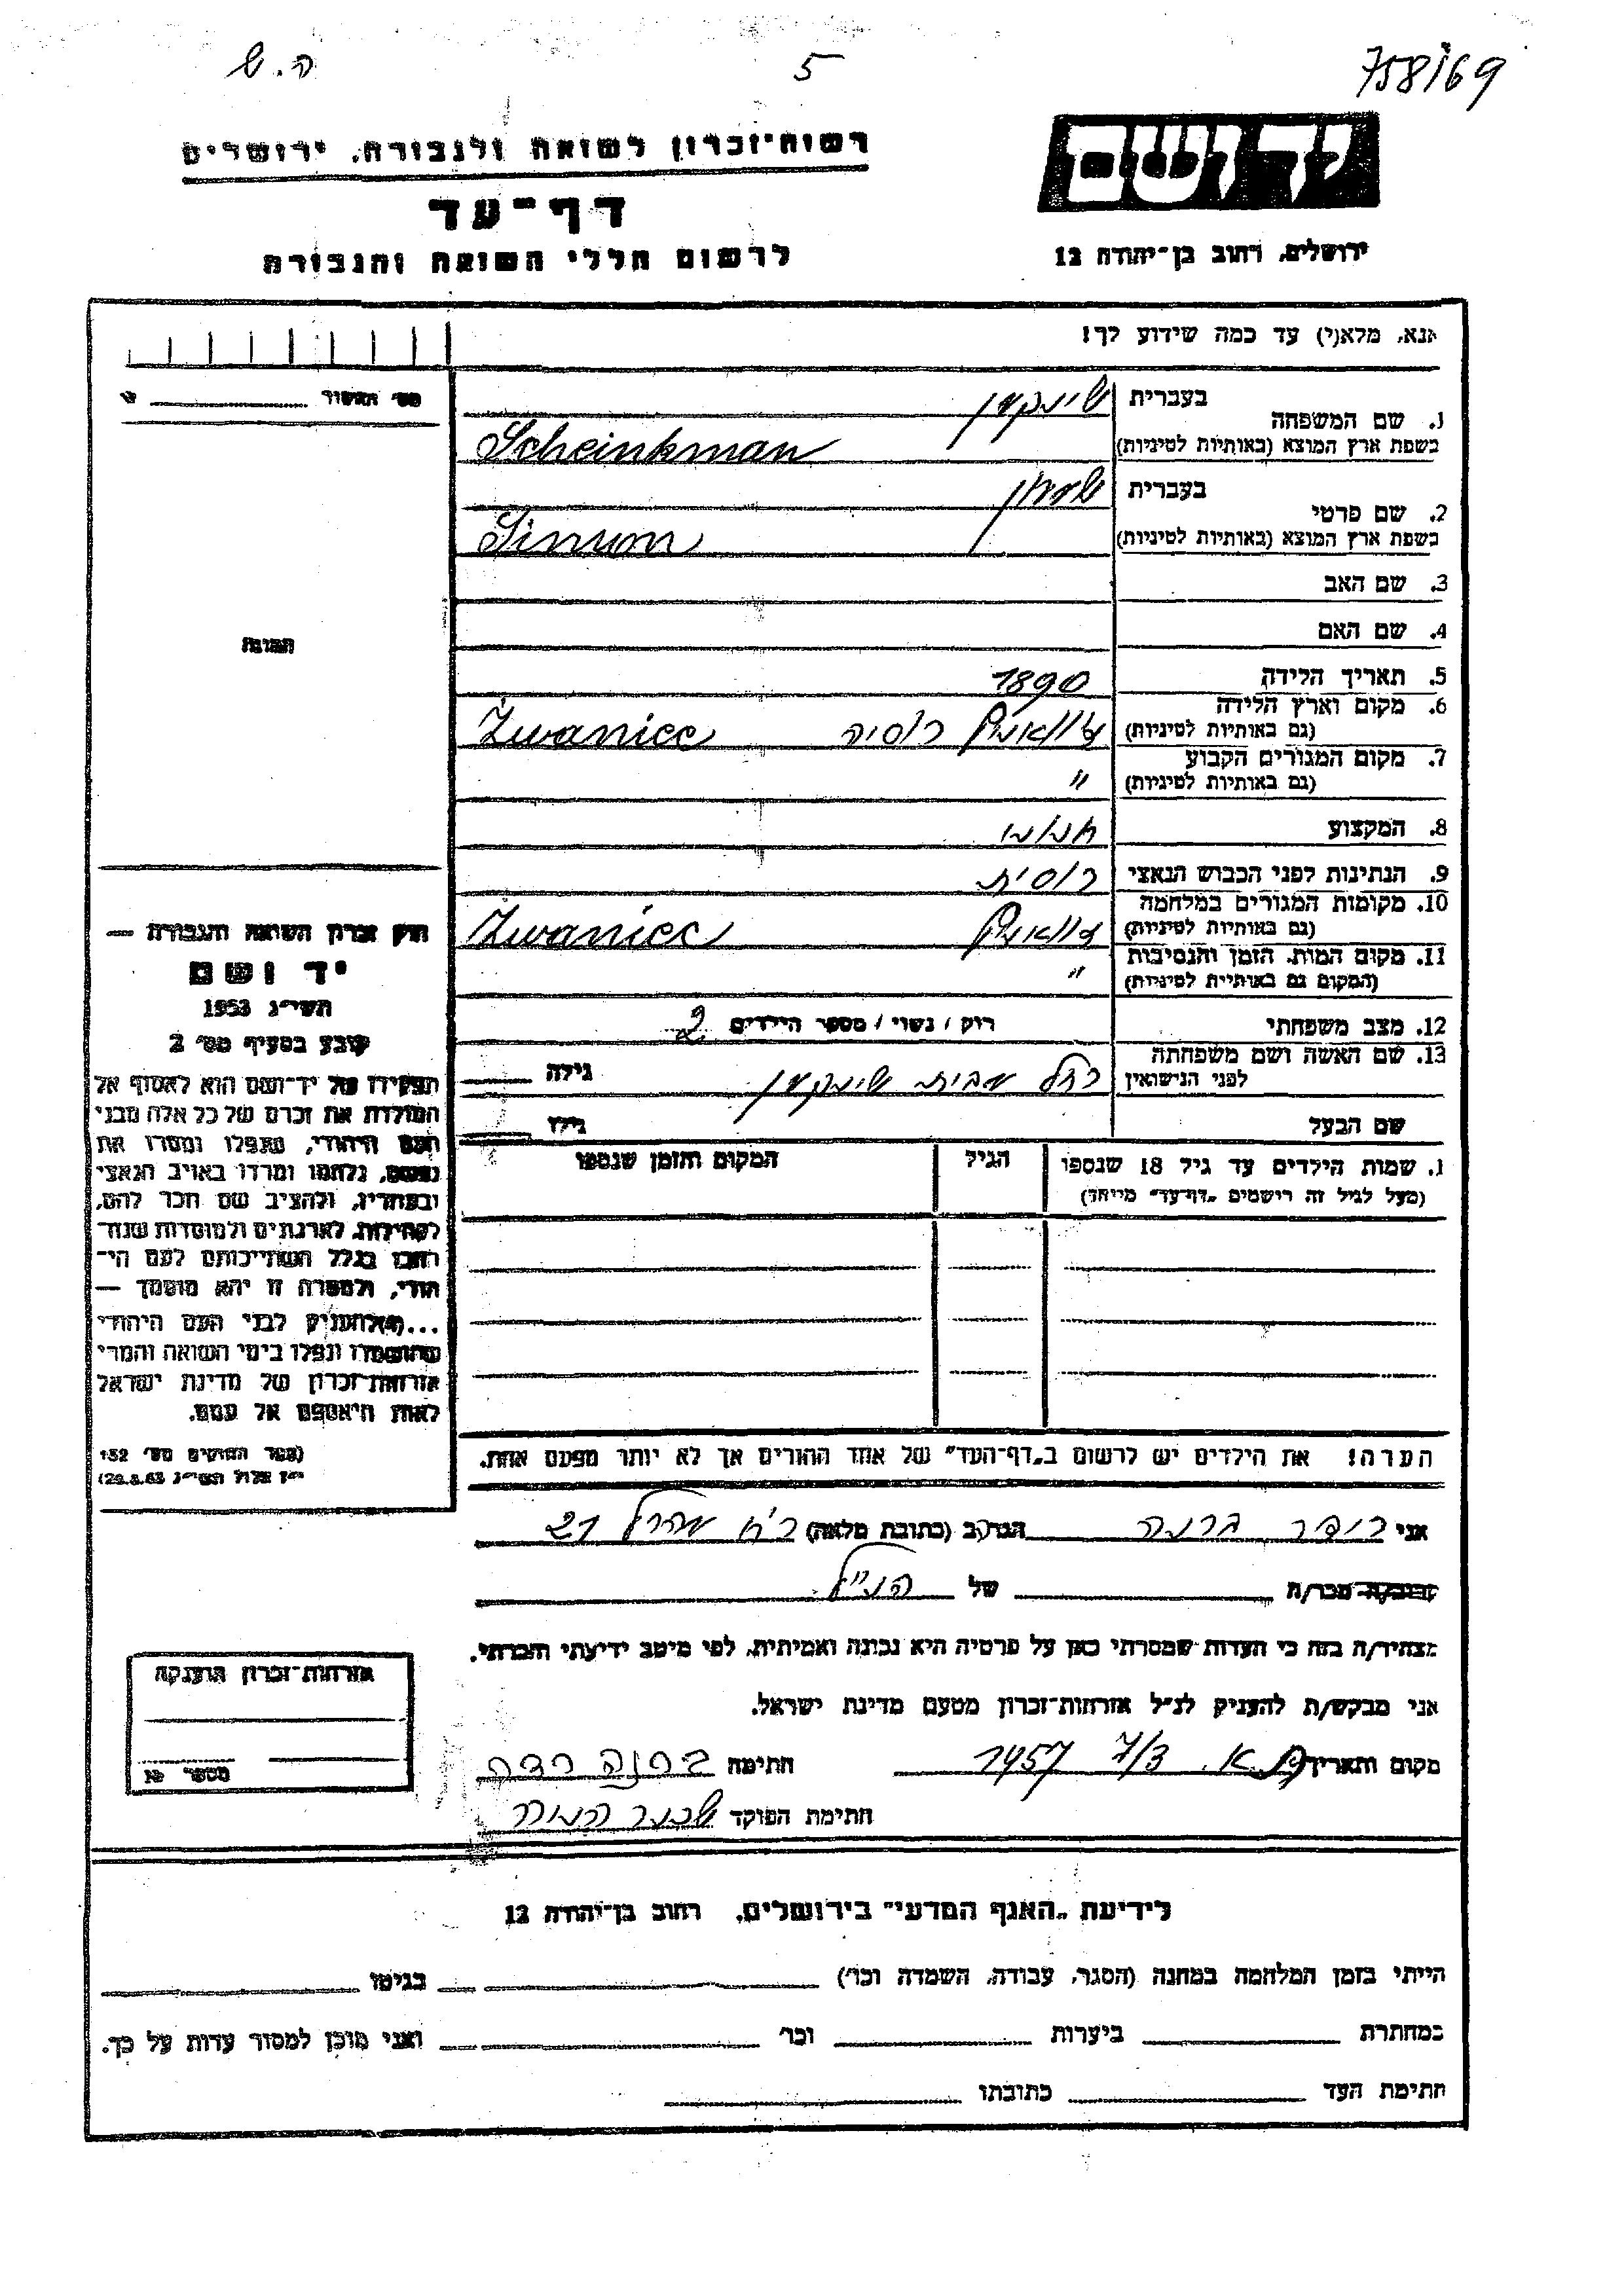 758/69
5
ה.ש
יד ושם
ירושלים, רחוב בן־יהודה 12
רשות־זכרון לשואה ולגבורה, ירושלים
דף־עד
לרשום חללי השואה והגבורה
אנא, מלא(י) עד כמה שידוע לך!
מס' האשור
1. שם המשפחה
בעברית שינקמן
בשפת ארץ המוצא (באותיות לטיניות) Scheinkman
2. שם פרטי
בעברית שמעון
בשפת ארץ המוצא (באותיות לטיניות) Simon
3. שם האב
4. שם האם
5. תאריך הלידה 1890
6. מקום וארץ הלידה
(גם באותיות לטיניות) רוסיה Żwaniec
7. מקום המגורים הקבוע
(גם באותיות לטיניות) "
8. המקצוע חנוני
9. הנתינות לפני הכבוש הנאצי רוסית
10. מקומות המגורים במלחמה
(גם באותיות לטיניות) Żwaniec
11. מקום המות, הזמן והנסיבות
(המקום גם באותיות לטיניות) "
12. מצב משפחתי רוק / נשוי / מספר הילדים 2
13. שם האשה ושם משפחתה
לפני הנישואין רחל מבית שינקמן גילה
שם הבעל גילו
1. שמות הילדים עד גיל 18 שנספו
(מעל לגיל זה רישמים „דף־עד" מייחד)
הגיל
המקום והזמן שנספו
הערה! את הילדים יש לרשום ב„דף־העד" של אחד ההורים אך לא יותר מפעם אחת.
תמונה
חוק זכרון השואה והגבורה —
יד ושם
תשי"ג 1953
קובע בסעיף מס' 2
תפקידו של יד־ושם הוא לאסוף אל
המולדת את זכרם של כל אלה מבני
העם היהודי, שנפלו ומסרו את
נפשם, נלחמו ומרדו באויב הנאצי
ובעוזריו, ולהציב שם וזכר להם,
לקהילות, לארגונים ולמוסדות שנח־
רבו בגלל השתייכותם לעם הי־
הודי, ולמטרה זו יהא מוסמך —
...(4) להעניק לבני העם היהודי
שהושמדו ונפלו בימי השואה והמרי
אזרחות־זכרון של מדינת ישראל
לאות היאספם אל עמם.
(ספר החוקים מס' 132
י"ז אלול תשי"ג 28.8.53)
אני ברנה הגר/ב (כתובת מלאה) רח' 21
קרוב/ה מכר/ה של הנ"ל
מצהיר/ה בזה כי העדות שמסרתי כאן על פרטיה היא נכונה ואמיתית, לפי מיטב ידיעתי והכרתי.
אני מבקש/ת להעניק לנ"ל אזרחות־זכרון מטעם מדינת ישראל.
מקום ותאריך ת.א. 7/3 1957 חתימה ברנה
חתימת הפוקד
אזרחות־זכרון הוענקה
מספר
לידיעת „האגף המדעי" בירושלים, רחוב בן־יהודה 12
הייתי בזמן המלחמה במחנה (הסגר, עבודה, השמדה וכו') בגיטו
במחתרת ביערות וכו' ואני מוכן למסור עדות על כך.
חתימת העד כתובתו